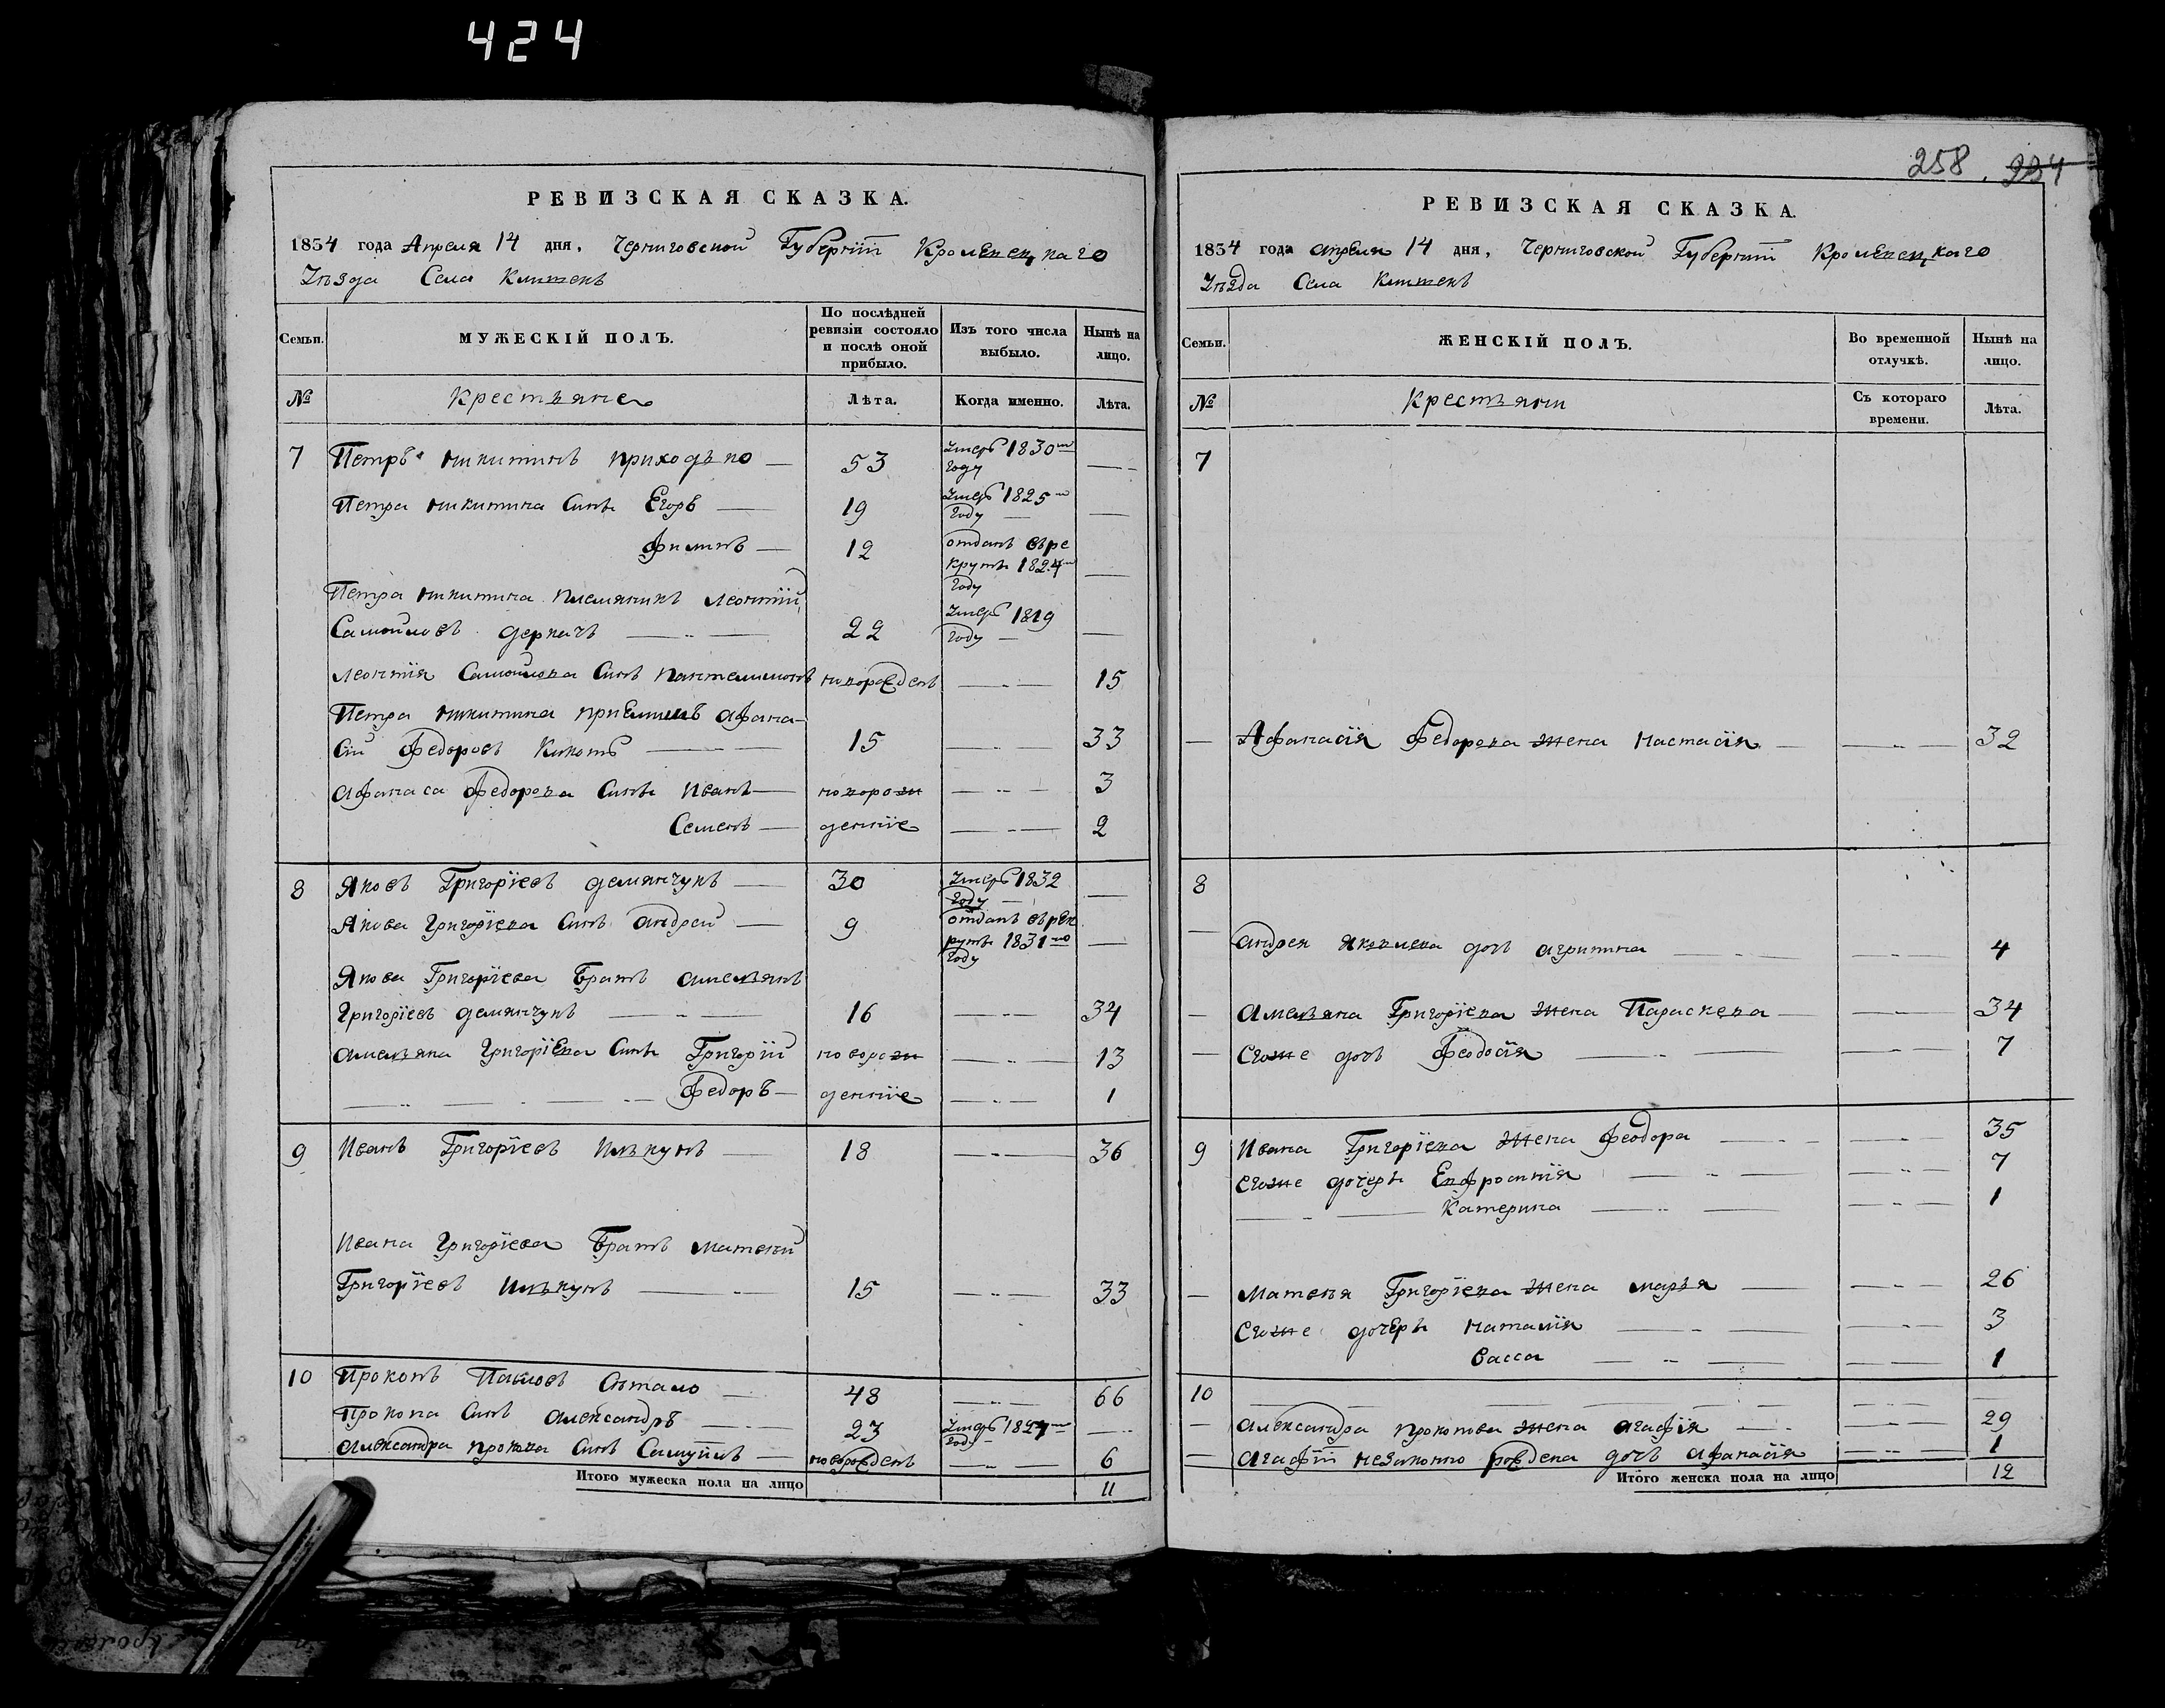 424
258. 224
РЕВИЗСКАЯ СКАЗКА.
1834 года Апреля 14 дня, Черниговской Губерніи Кролевецкаго
Уѣзда Села
Семьи.
МУЖЕСКІЙ ПОЛЪ.
По послѣдней
ревизіи состояло
и послѣ оной
прибыло.
Изъ того числа
выбыло.
Нынѣ на
лицо.
№
Крестьяне
Лѣта.
Когда именно.
Лѣта.
7 Петръ Никитинъ Приходько — 53 Умеръ 1830го — 
году
Петра Никитина Сынъ Егоръ — 19 Умеръ 1825го —
году —
Филипъ — 12 отданъ въ ре
круты 1824го —
году
Петра Никитина племяникъ Леонтій
Самойловъ Деркачъ — 22 Умеръ 1819 —
году —
Леонтія Самойлова Сынъ Пантелимонъ новорожденъ — 15
Петра Никитина пріемышъ Афана-
сій Федоровъ — 15 — 33
Афанаса Федорова Сынъ Иванъ — новорож — 3
Семенъ — денніе — 2
8 Яковъ Григоріевъ Демянчукъ — 30 Умеръ 1832 —
году —
Якова Григоріева Сынъ Андрей — 9 отданъ въ рек
руты 1831го —
году
Якова Григоріева Братъ Амельянъ
Григоріевъ Демянчукъ — 16 — 34
Амельяна Григоріева Сынъ Григорій новорож — 13
Федоръ — денніе — 1
9 Иванъ Григоріевъ — 18 — 36
Ивана Григоріева Братъ Матвѣй
Григоріевъ — 15 — 33
10 Прокопъ Павловъ — 48 — 66
Прокопа Сынъ Александръ — 23 Умеръ 1827го —
году —
Александра Прокопова Сынъ — новорожденъ — 6
Итого мужеска пола на лицо 11
РЕВИЗСКАЯ СКАЗКА.
1834 года Апреля 14 дня, Черниговской Губерніи Кролевецкаго
Уѣзда Села
Семьи.
ЖЕНСКІЙ ПОЛЪ.
Во временной
отлучкѣ.
Нынѣ на
лицо.
№
Крестьяни
Съ котораго
времени.
Лѣта.
7
— Афанасія Федорова жена Настасія — 32
8
— Андрея Яковлева дочь Агрипина — 4
— Амельяна Григоріева жена Параскева — 34
— Егоже дочь Феодосія — 7
9 Ивана Григоріева жена Феодора — 35
Егоже дочери Евфросинія — 7
Катерина — 1
— Матвѣя Григоріева жена Марья — 26
Егоже дочери Наталія — 3
Васса — 1
10 —
— Александра Прокопова жена Агафія — 29
— Агафіи незаконно рождена дочь Афанасія — 1
Итого женска пола на лицо 12